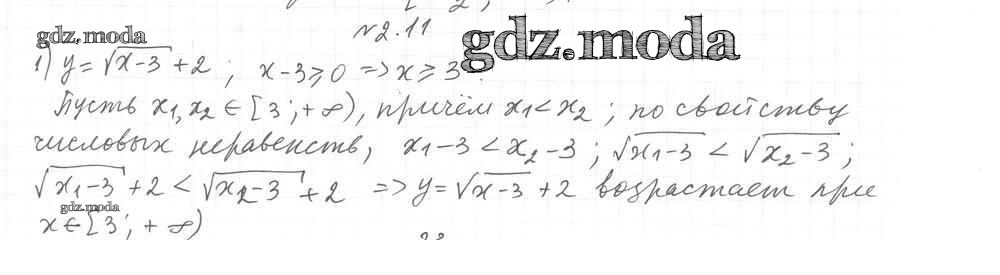 №2.11
gdz.moda
gdz.moda
1) y = √x-3 + 2 ; x-3 ⩾ 0 => x ⩾ 3.
Пусть x₁, x₂ ∈ [3; +∞), причём x₁ < x₂ ; по свойству
числовых неравенств, x₁-3 < x₂-3 ; √x₁-3 < √x₂-3 ;
√x₁-3 + 2 < √x₂-3 + 2 => y = √x-3 + 2 возрастает при
gdz.moda
x ∈ [3; +∞)